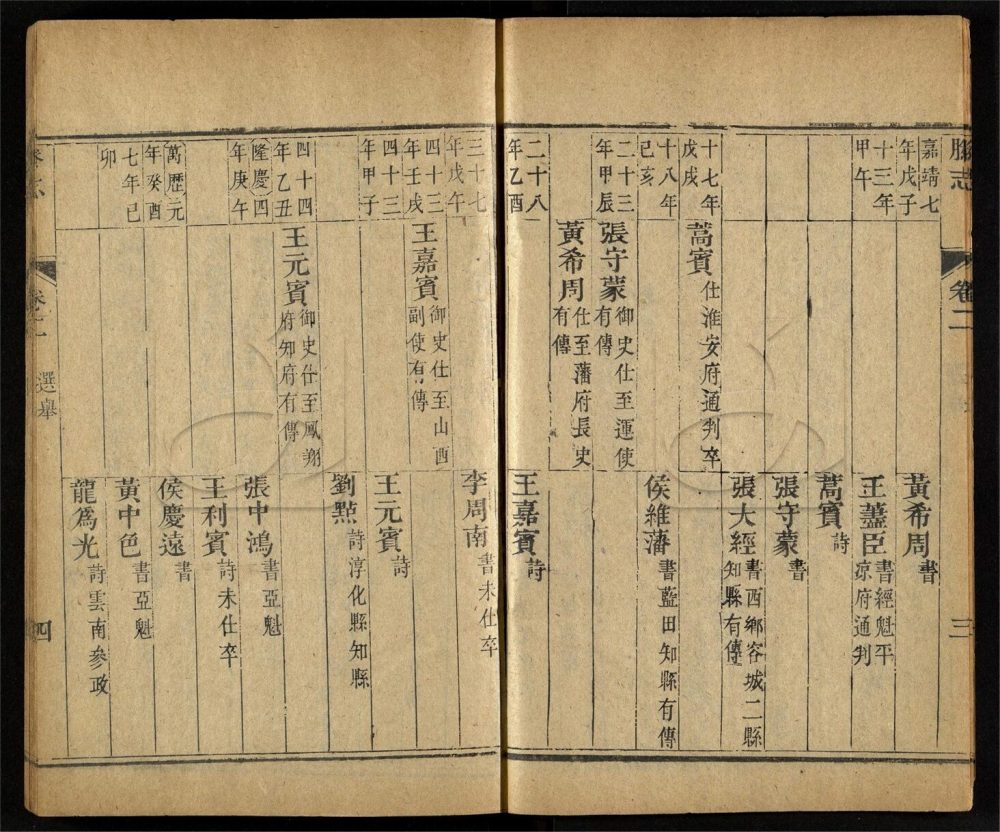 卷二
三
嘉靖七年戊子
黃希周書
十三年甲午
王藎臣書經魁平涼府通判
蒿賓詩
張守蒙書
張大經書西鄉容城二縣知縣有傳
十七年戊戌
蒿賓仕淮安府通判卒
十八年己亥
侯維藩書藍田知縣有傳
二十三年甲辰
張守蒙御史仕至運使有傳
黃希周仕至藩府長史有傳
二十八年乙酉
王嘉賓詩
三十七年戊午
李周南書未仕卒
四十三年壬戌
王嘉賓御史仕至山西副使有傳
四十三年甲子
王元賓詩
劉㸃詩淳化縣知縣
四十四年乙丑
王元賓御史仕至鳳翔府知府有傳
隆慶四年庚午
張中鴻書亞魁
王利賓詩未仕卒
萬歷元年癸酉
侯慶遠書
七年己卯
黃中色書亞魁
龍爲光詩雲南參政
選舉
四